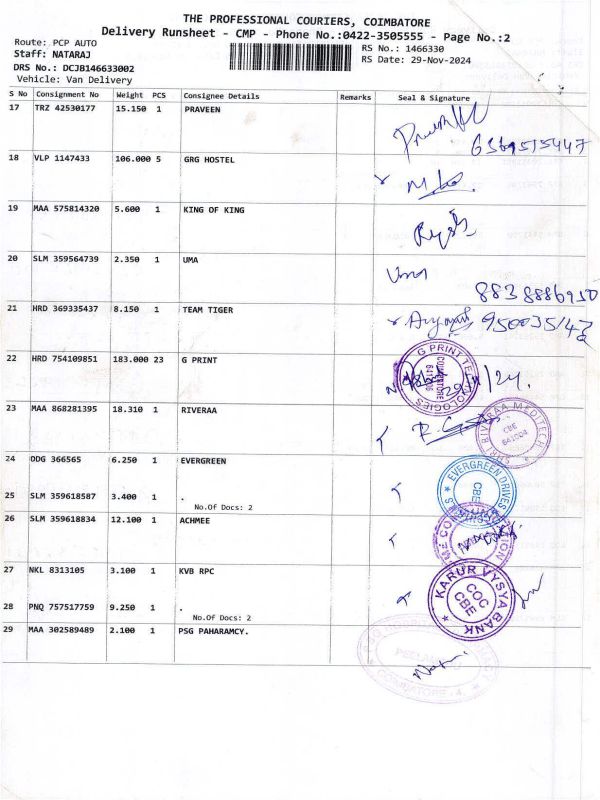 THE PROFESSIONAL COURIERS, COIMBATORE
Delivery Runsheet - CMP - Phone No.:0422-3505555 - Page No.:2
Route: PCP AUTO
Staff: NATARAJ
DRS No.: DCJB146633002
Vehicle: Van Delivery
RS No.: 1466330
RS Date: 29-Nov-2024
S No Consignment No Weight PCS Consignee Details Remarks Seal & Signature
17 TRZ 42530177 15.150 1 PRAVEEN
18 VLP 1147433 106.000 5 GRG HOSTEL
19 MAA 575814320 5.600 1 KING OF KING
20 SLM 359564739 2.350 1 UMA
Uma
21 HRD 369335437 8.150 1 TEAM TIGER
22 HRD 754109851 183.000 23 G PRINT
G PRINT TECHNOLOGIES
23 MAA 868281395 18.310 1 RIVERAA
SRI RIVERAA MEDITECH
CBE
641004
24 DDG 366565 6.250 1 EVERGREEN
EVERGREEN DRIVES
CBE
25 SLM 359618587 3.400 1 .
No.Of Docs: 2
26 SLM 359618834 12.100 1 ACHMEE
27 NKL 8313105 3.100 1 KVB RPC
KARUR VYSYA BANK
COC
CBE
28 PNQ 757517759 9.250 1 .
No.Of Docs: 2
29 MAA 302589489 2.100 1 PSG PAHARAMCY.
COIMBATORE - 4.